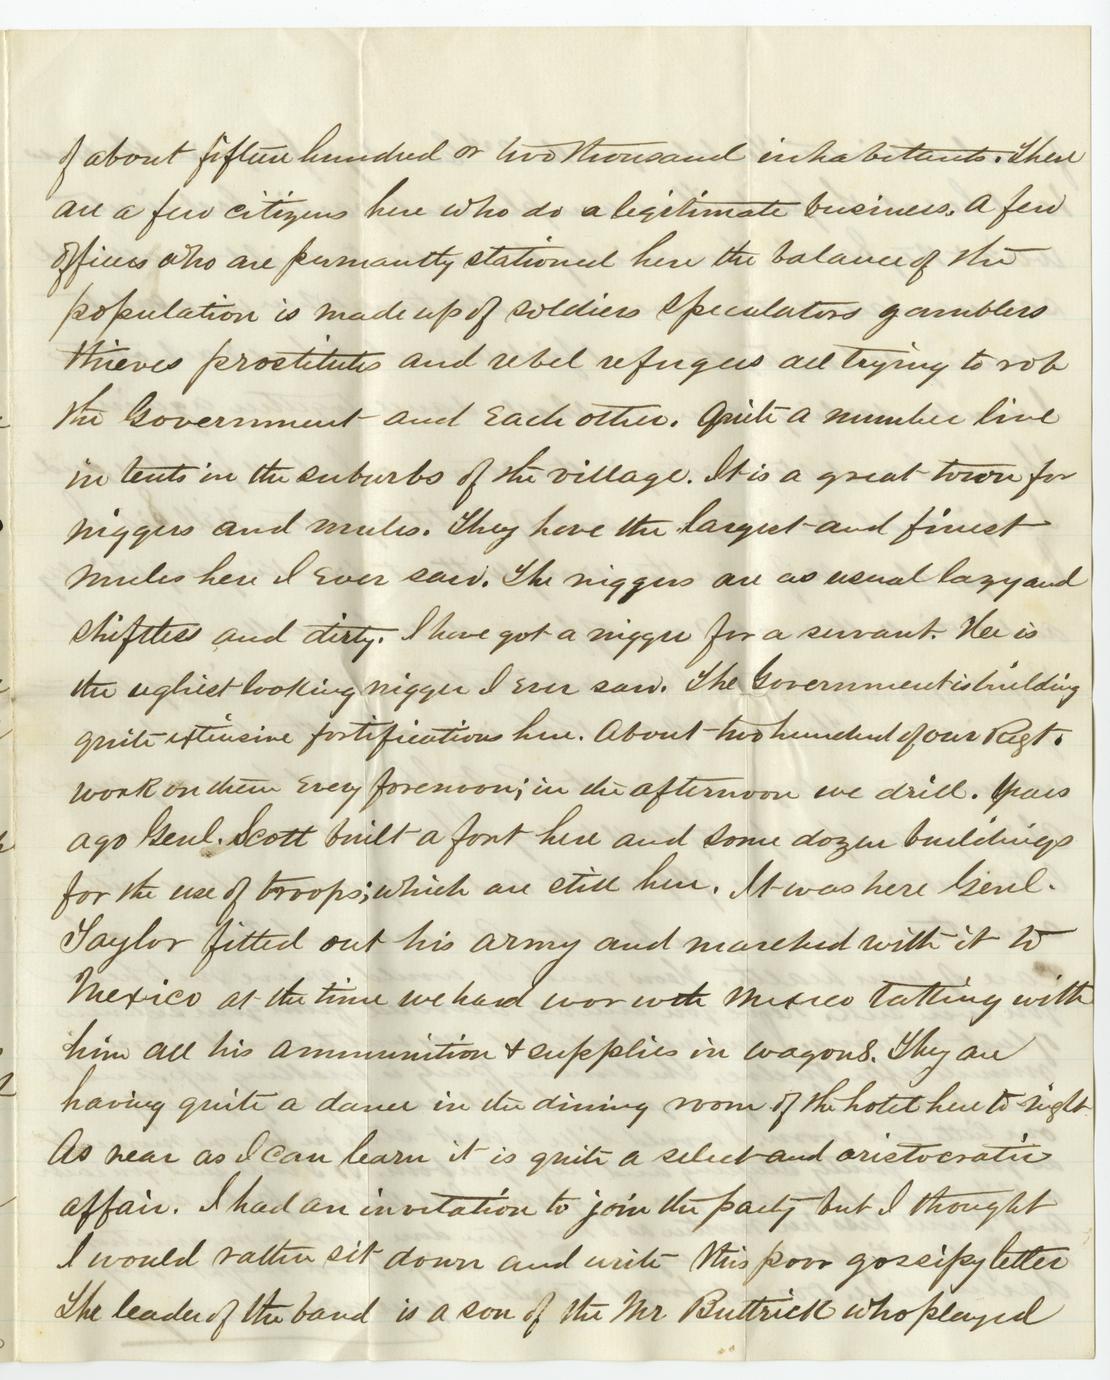 of about fifteen hundred or two thousand inhabetants. There
are a few citizens here who do a legitimate business. A few
officers who are permantly stationed here the balance of the
population is made up of soldiers speculators gamblers
thieves prostitutes and rebel refugees all trying to rob
the Government and each other. Quite a number live
in tents in the suburbs of the village. It is a great town for
niggers and mules. They have the largest and finest
mules here I ever saw. The niggers are as usual lazy and
shiftless and dirty. I have got a nigger for a servant. Hee is
the ugliest looking nigger I ever saw. The Government is building
quite extensive fortifications here. About two hundred of our Regt.
work on them every forenoon; in the afternoon we drill. Years
ago Genl. Scott built a fort here and some dozen buildings
for the use of troops; which are still here. It was here Genl.
Taylor fitted out his army and marched with it to
Mexico at the time we had war with Mexico takking with
him all his ammunition & supplies in wagons. They are
having quite a dance in the dining room of the hotel here to-night
As near as I can learn it is quite a select and aristocratic
affair. I had an invitation to join the party but I thought
I would rather sit down and write this poor gossipy letter
The leader of the band is a son of the Mr Buttrick who played